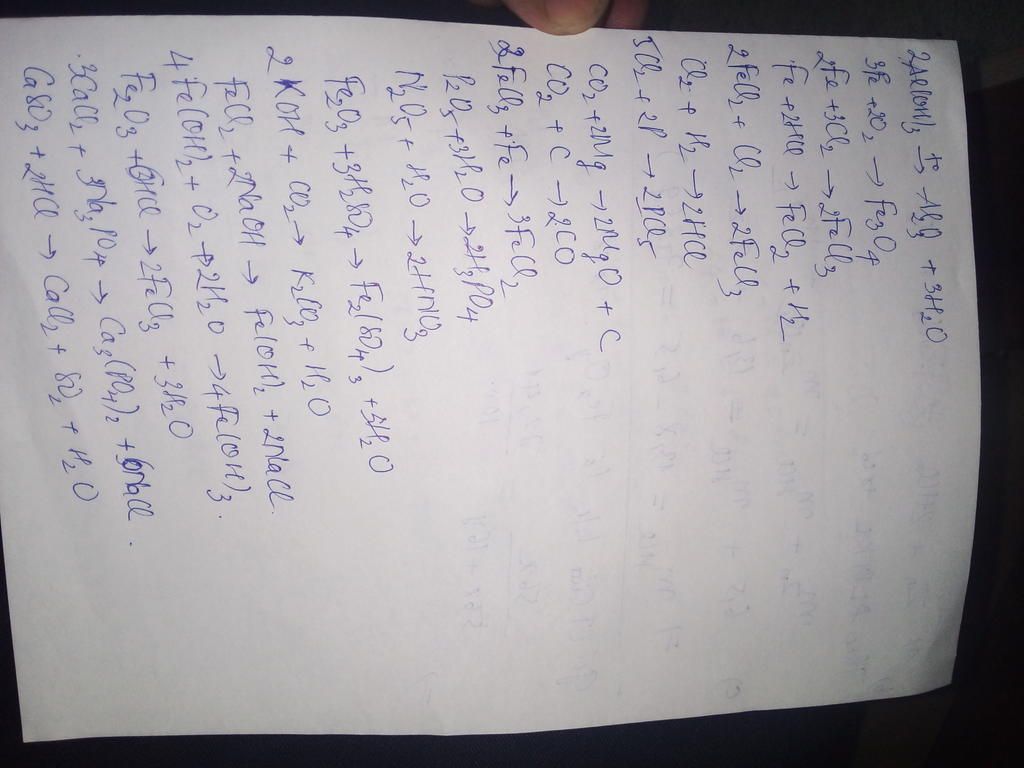 2Al(OH)3 →t° Al2O3 + 3H2O
3Fe + 2O2 → Fe3O4
2Fe + 3Cl2 → 2FeCl3
Fe + 2HCl → FeCl2 + H2
2FeCl2 + Cl2 → 2FeCl3
Cl2 + H2 → 2HCl
5Cl2 + 2P → 2PCl5
CO2 + 2Mg → 2MgO + C
CO2 + C → 2CO
2FeCl3 + Fe → 3FeCl2
P2O5 + 3H2O → 2H3PO4
N2O5 + H2O → 2HNO3
Fe2O3 + 3H2SO4 → Fe2(SO4)3 + 3H2O
2KOH + CO2 → K2CO3 + H2O
FeCl2 + 2NaOH → Fe(OH)2 + 2NaCl.
4Fe(OH)2 + O2 + 2H2O → 4Fe(OH)3.
Fe2O3 + 6HCl → 2FeCl3 + 3H2O
3CaCl2 + 2Na3PO4 → Ca3(PO4)2 + 6NaCl.
CaSO3 + 2HCl → CaCl2 + SO2 + H2O